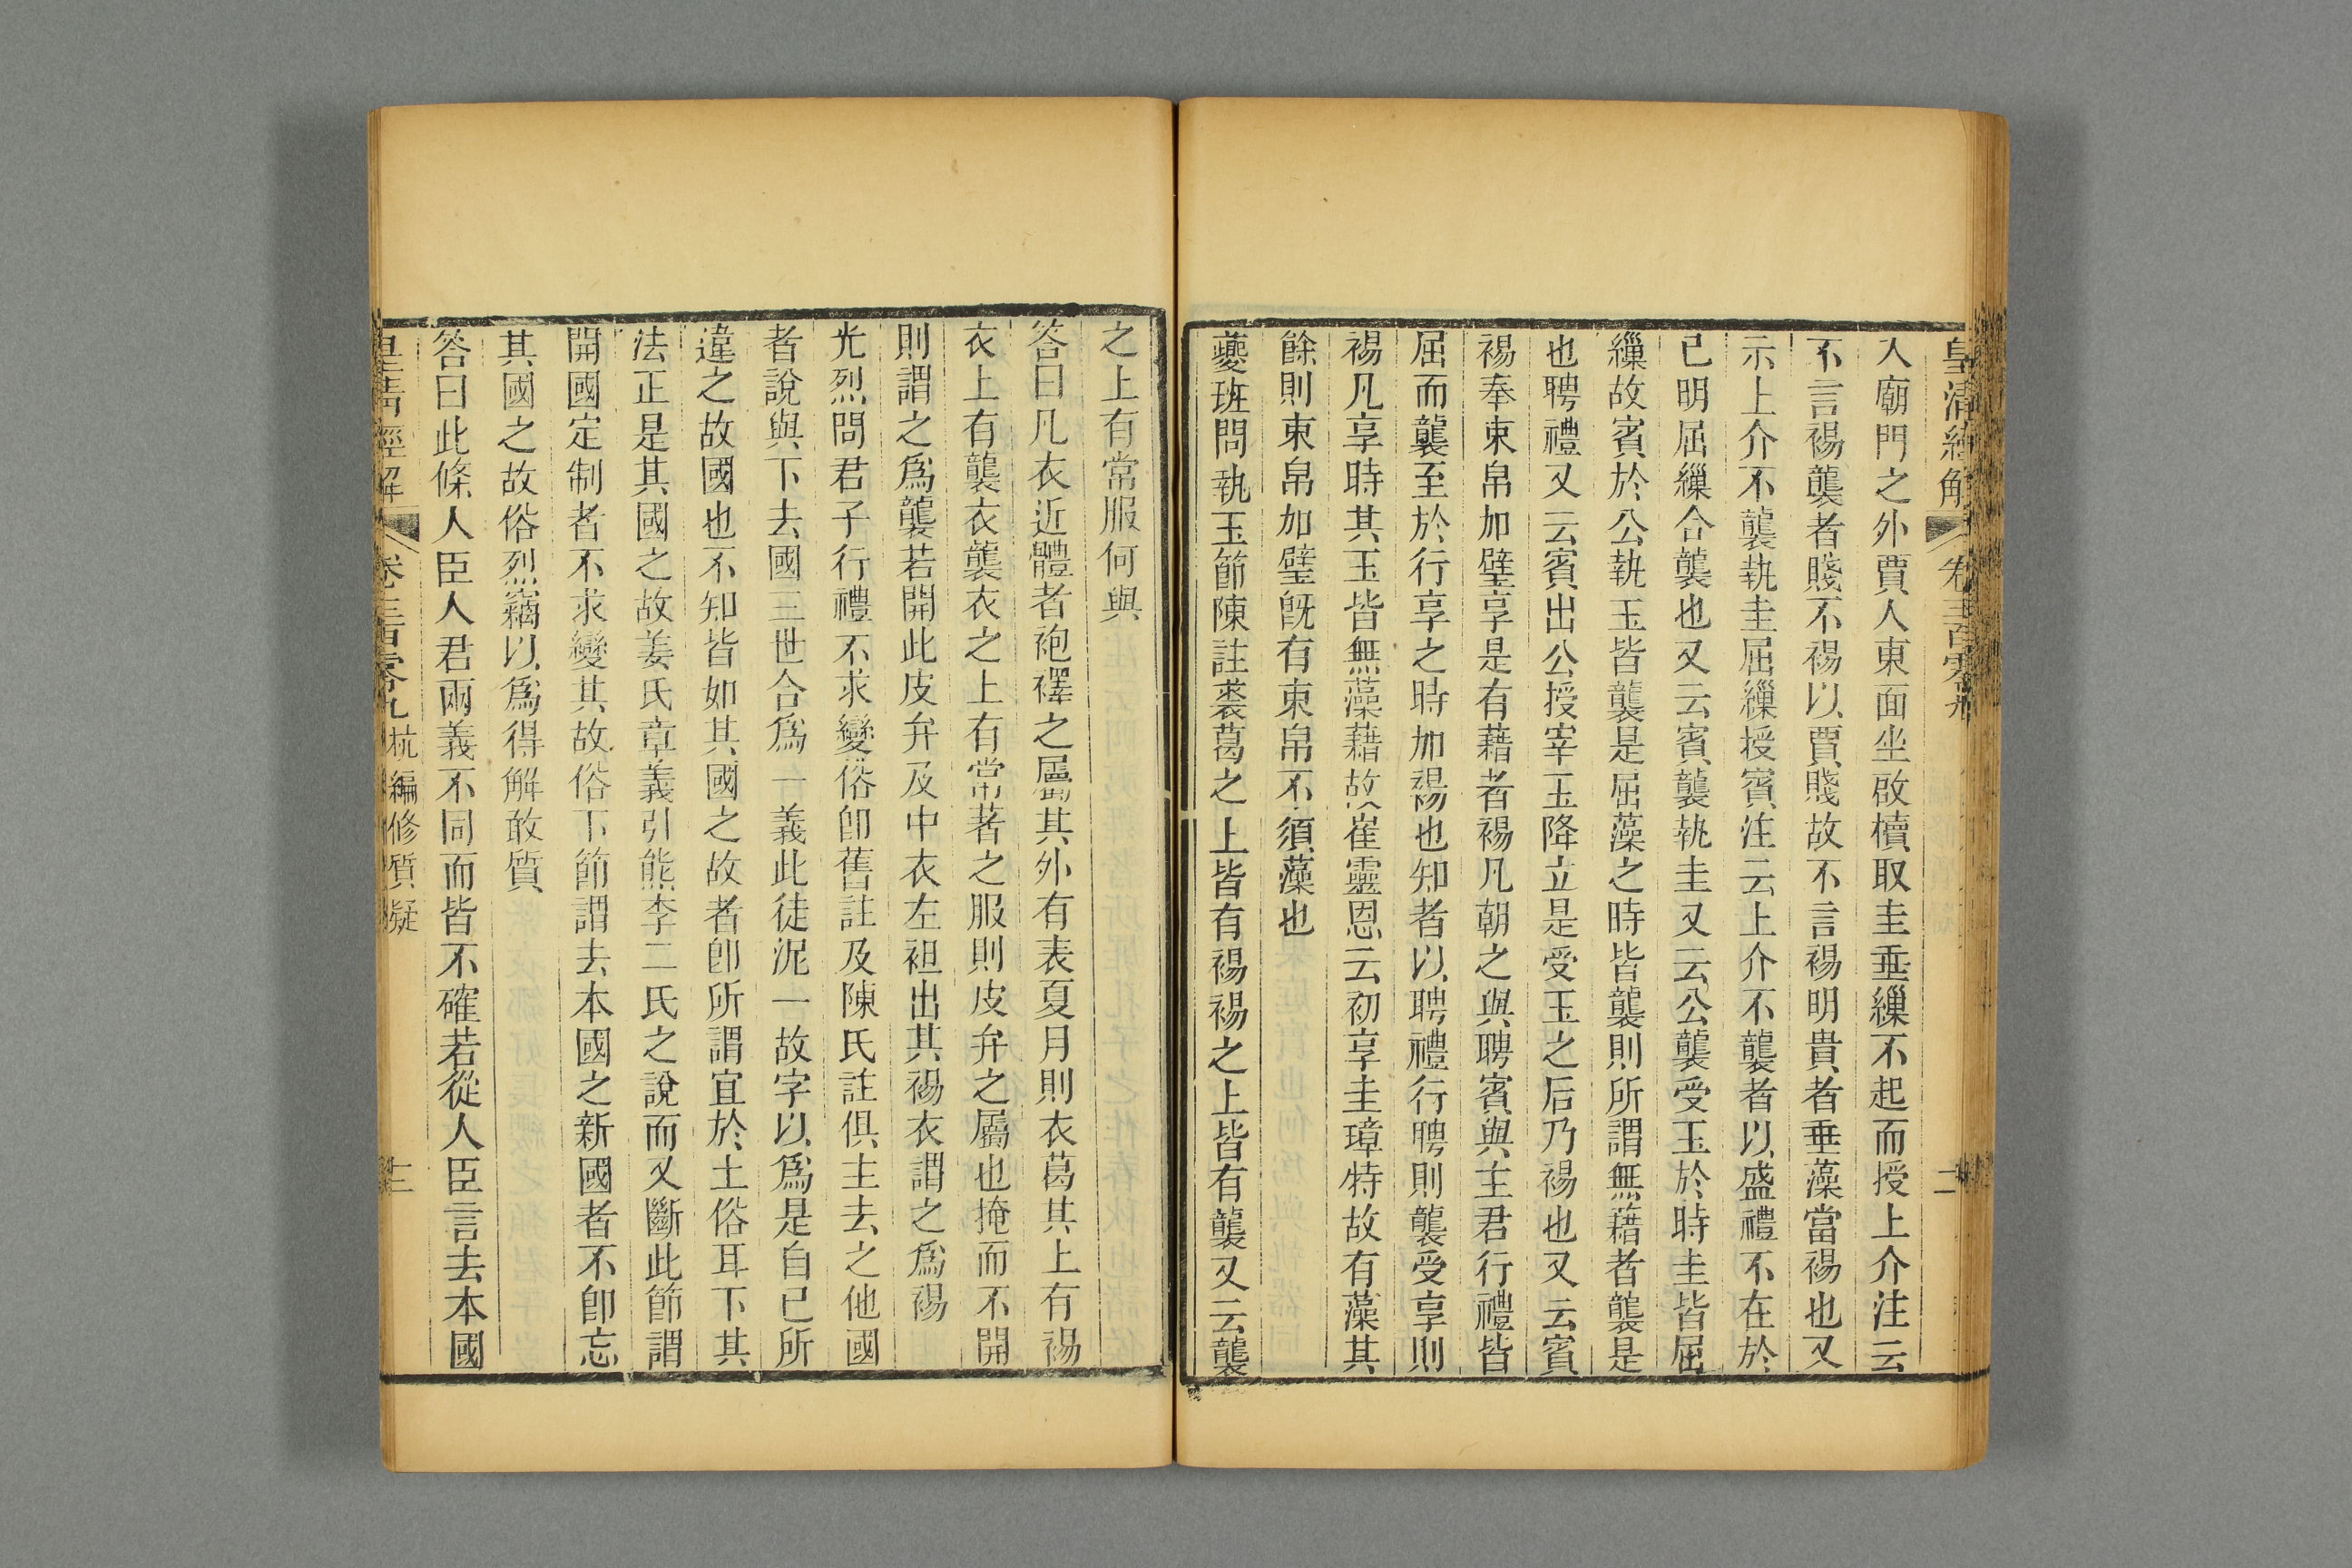 皇清經解 卷三百零九 二
入廟門之外賈人東面坐啟櫝取圭垂繅不起而授上介注云
不言裼襲者賤不裼以賈賤故不言裼明貴者垂藻當裼也又
示上介不襲執圭屈繅授賓注云上介不襲者以盛禮不在於
己明屈繅合襲也又云賓襲執圭又云公襲受玉於時圭皆屈
繅故賓於公執玉皆襲是屈藻之時皆襲則所謂無藉者襲是
也聘禮又云賓出公授宰玉降立是受玉之后乃裼也又云賓
裼奉束帛加璧享是有藉者裼凡朝之與聘賓與主君行禮皆
屈而襲至於行享之時加裼也知者以聘禮行聘則襲受享則
裼凡享時其玉皆無藻藉故崔靈恩云初享圭璋特故有藻其
餘則束帛加璧既有束帛不須藻也
夔班問執玉節陳註裘葛之上皆有裼裼之上皆有襲又云襲
之上有常服何與
答曰凡衣近體者袍襗之屬其外有表夏月則衣葛其上有裼
衣上有襲衣襲衣之上有常著之服則皮弁之屬也掩而不開
則謂之為襲若開此皮弁及中衣左袒出其裼衣謂之為裼
光烈問君子行禮不求變俗卽舊註及陳氏註俱主去之他國
者說與下去國三世合為一義此徒泥一故字以為是自己所
違之故國也不知皆如其國之故者卽所謂宜於土俗耳下其
法正是其國之故姜氏章義引熊李二氏之說而又斷此節謂
開國定制者不求變其故俗下節謂去本國之新國者不卽忘
其國之故俗烈竊以為得解敢質
答曰此條人臣人君兩義不同而皆不確若從人臣言去本國
皇清經解 卷三百零九 杭編修質疑 二